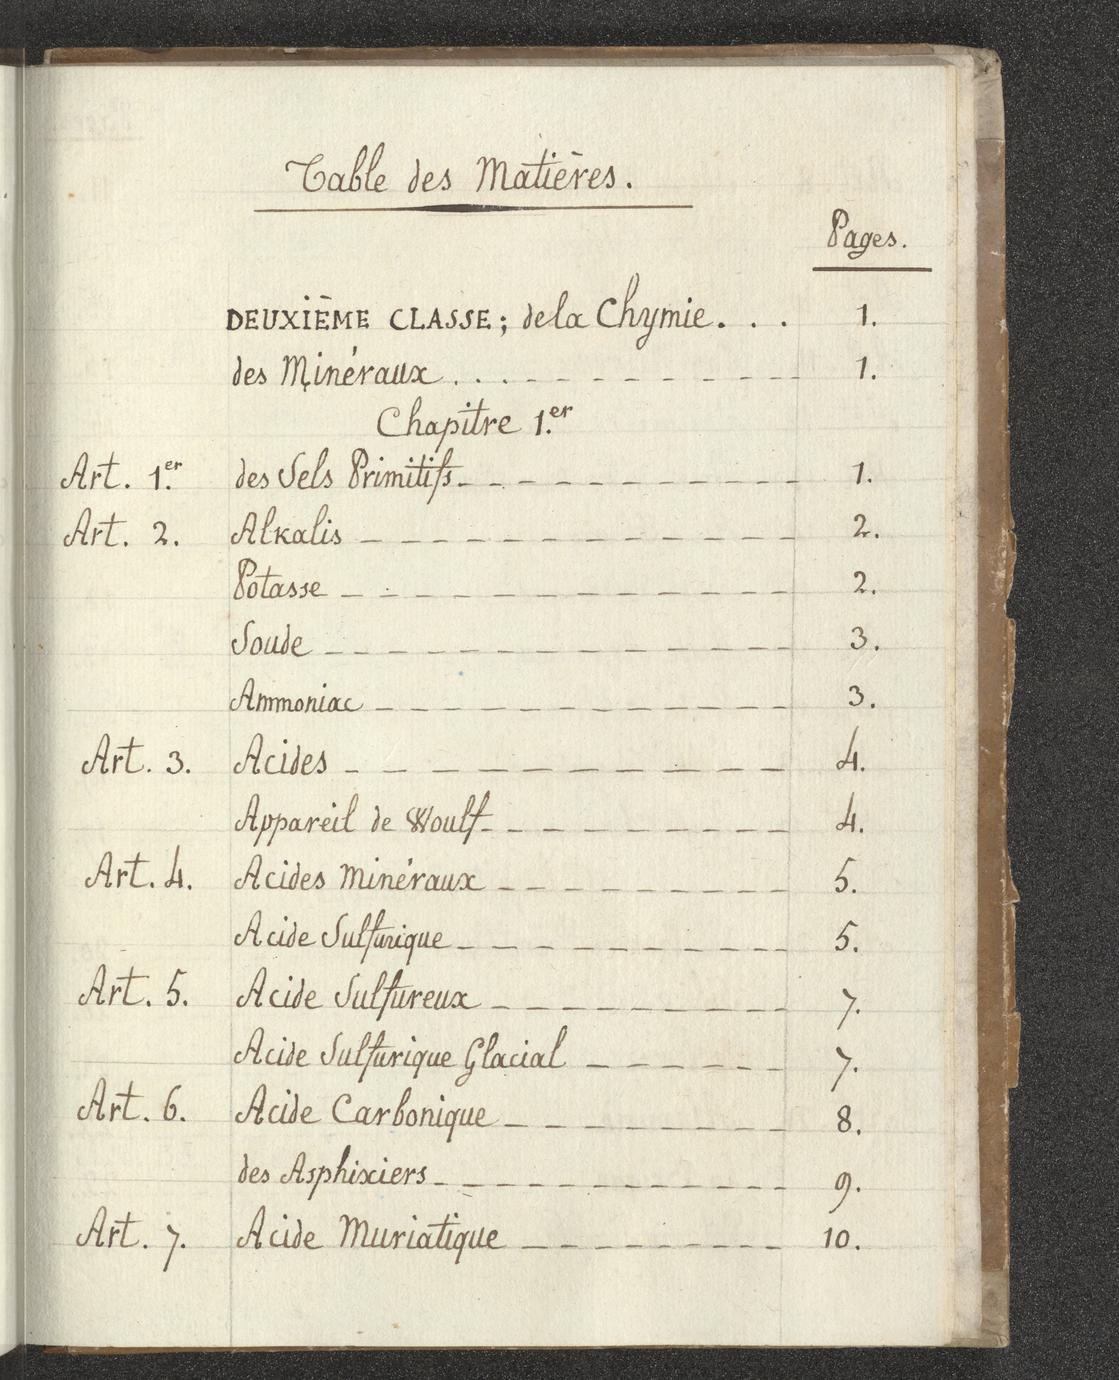 Table des Matières.
Pages.
DEUXIÈME CLASSE; de la Chymie. . . . 1.
des Minéraux . . . . - - - - - - - - 1.
Chapitre 1.er
Art. 1.er des Sels Primitifs - - - - - - - - - - - - 1.
Art. 2. Alkalis - - - - - - - - - - - - 2.
Potasse - - - - - - - - - - - - 2.
Soude - - - - - - - - - - - - - 3.
Ammoniac - - - - - - - - - - - - 3.
Art. 3. Acides - - - - - - - - - - - 4.
Appareil de Woulf - - - - - - - - 4.
Art. 4. Acides Minéraux - - - - - - - - - 5.
Acide Sulfurique - - - - - - - - - - 5.
Art. 5. Acide Sulfureux - - - - - - - - - 7.
Acide Sulfurique Glacial - - - - - - 7.
Art. 6. Acide Carbonique - - - - - - - - - 8.
des Asphixiers - - - - - - - - - - - - 9.
Art. 7. Acide Muriatique - - - - - - - - - 10.